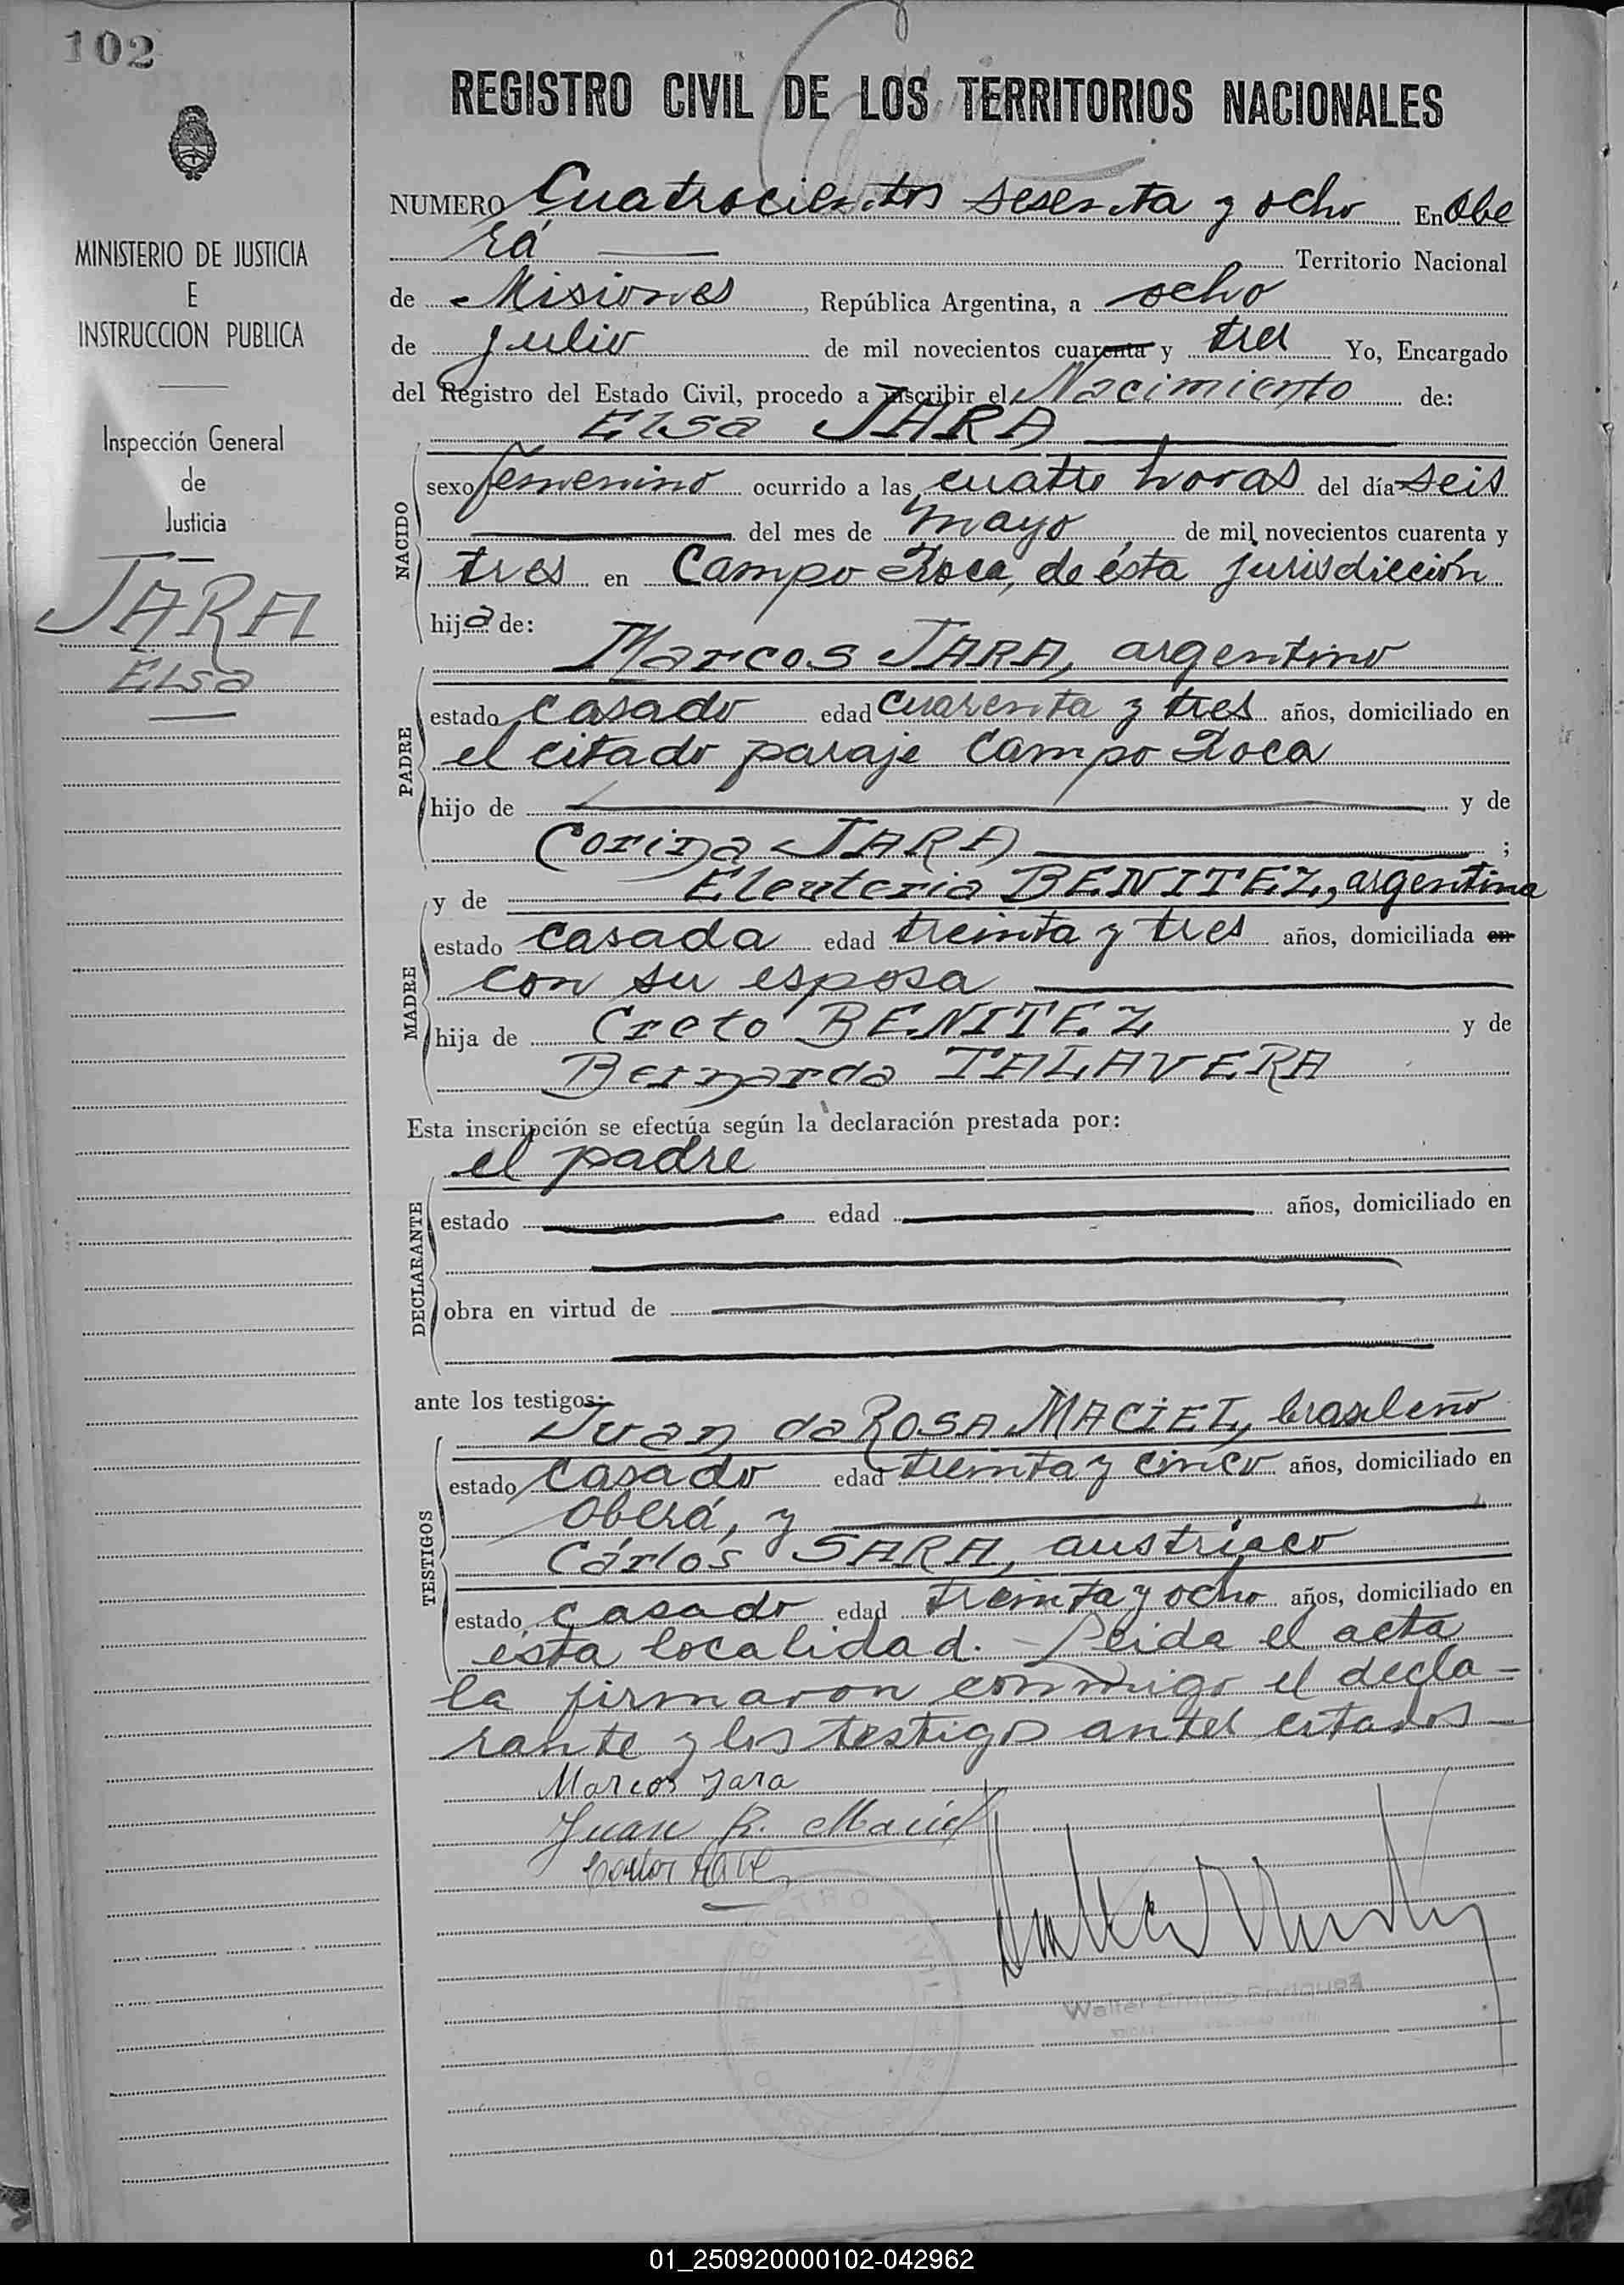 102
REGISTRO CIVIL DE LOS TERRITORIOS NACIONALES
MINISTERIO DE JUSTICIA
E
INSTRUCCION PUBLICA
Inspección General
de
Justicia
JARA
Elsa
NUMERO Cuatrocientos sesenta y ocho En Obe
rá Territorio Nacional
de Misiones, República Argentina, a ocho
de julio de mil novecientos cuarenta y tres Yo, Encargado
del Registro del Estado Civil, procedo a inscribir el Nacimiento de:
Elsa JARA
NACIDO
sexo femenino ocurrido a las cuatro horas del día seis
del mes de mayo, de mil novecientos cuarenta y
tres en Campo Roca, de ésta jurisdicción
hija de:
Marcos JARA, argentino
PADRE
estado casado edad cuarenta y tres años, domiciliado en
el citado paraje Campo Roca
hijo de y de
Corina JARA ;
y de Eleuteria BENITEZ, argentina
MADRE
estado casada edad treinta y tres años, domiciliada en
con su esposa
hija de Creto BENITEZ y de
Bernarda TALAVERA
Esta inscripción se efectúa según la declaración prestada por:
el padre
DECLARANTE
estado edad años, domiciliado en
obra en virtud de
ante los testigos:
Juan da ROSA MACIEL, brasileño
TESTIGOS
estado casado edad treinta y cinco años, domiciliado en
Oberá, y
Cárlos SARA, austriaco
estado casado edad treinta y ocho años, domiciliado en
ésta localidad. - Leida el acta
la firmaron conmigo el decla-
rante y los testigos antes citados
Marcos Jara
Juan R. Maciel
Carlos
Walter Emilio Enriquez
REGISTRO CIVIL
01_250920000102-042962